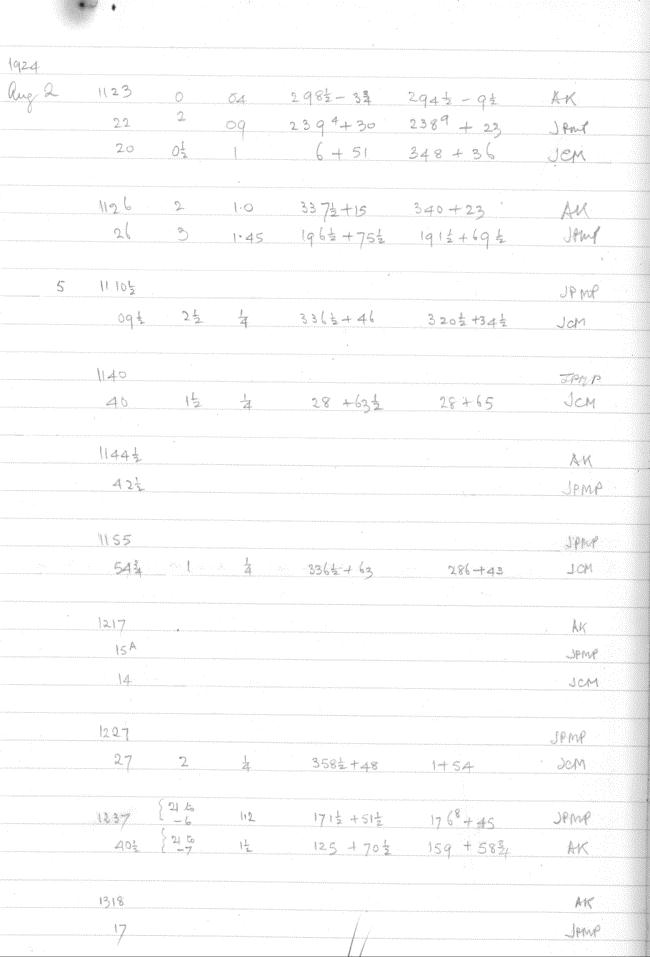 1924
Aug 2 1123 0 04 298½ - 3¾ 294½ - 9½ AK
22 2 09 239⁴ + 30 238⁹ + 23 JPMP
20 0½ 1 6 + 51 348 + 36 JCM
1126 2 1.0 337½ + 15 340 + 23 AK
26 3 1.45 196½ + 75½ 191½ + 69½ JPMP
5 1110½ JPMP
09½ 2½ ¼ 336½ + 46 320½ + 34½ JCM
1140 JPMP
40 1½ ¼ 28 + 63½ 28 + 65 JCM
1144½ AK
42½ JPMP
1155 JPMP
54¾ 1 ¼ 336½ + 63 286 + 43 JCM
1217 AK
15ᴬ JPMP
14 JCM
1227 JPMP
27 2 ¼ 358½ + 48 1 + 54 JCM
1237 -6 1.12 171½ + 51½ 176⁸ + 45 JPMP
40½ -7 1½ 125 + 70½ 159 + 58¾ AK
1318 AK
17 JPMP